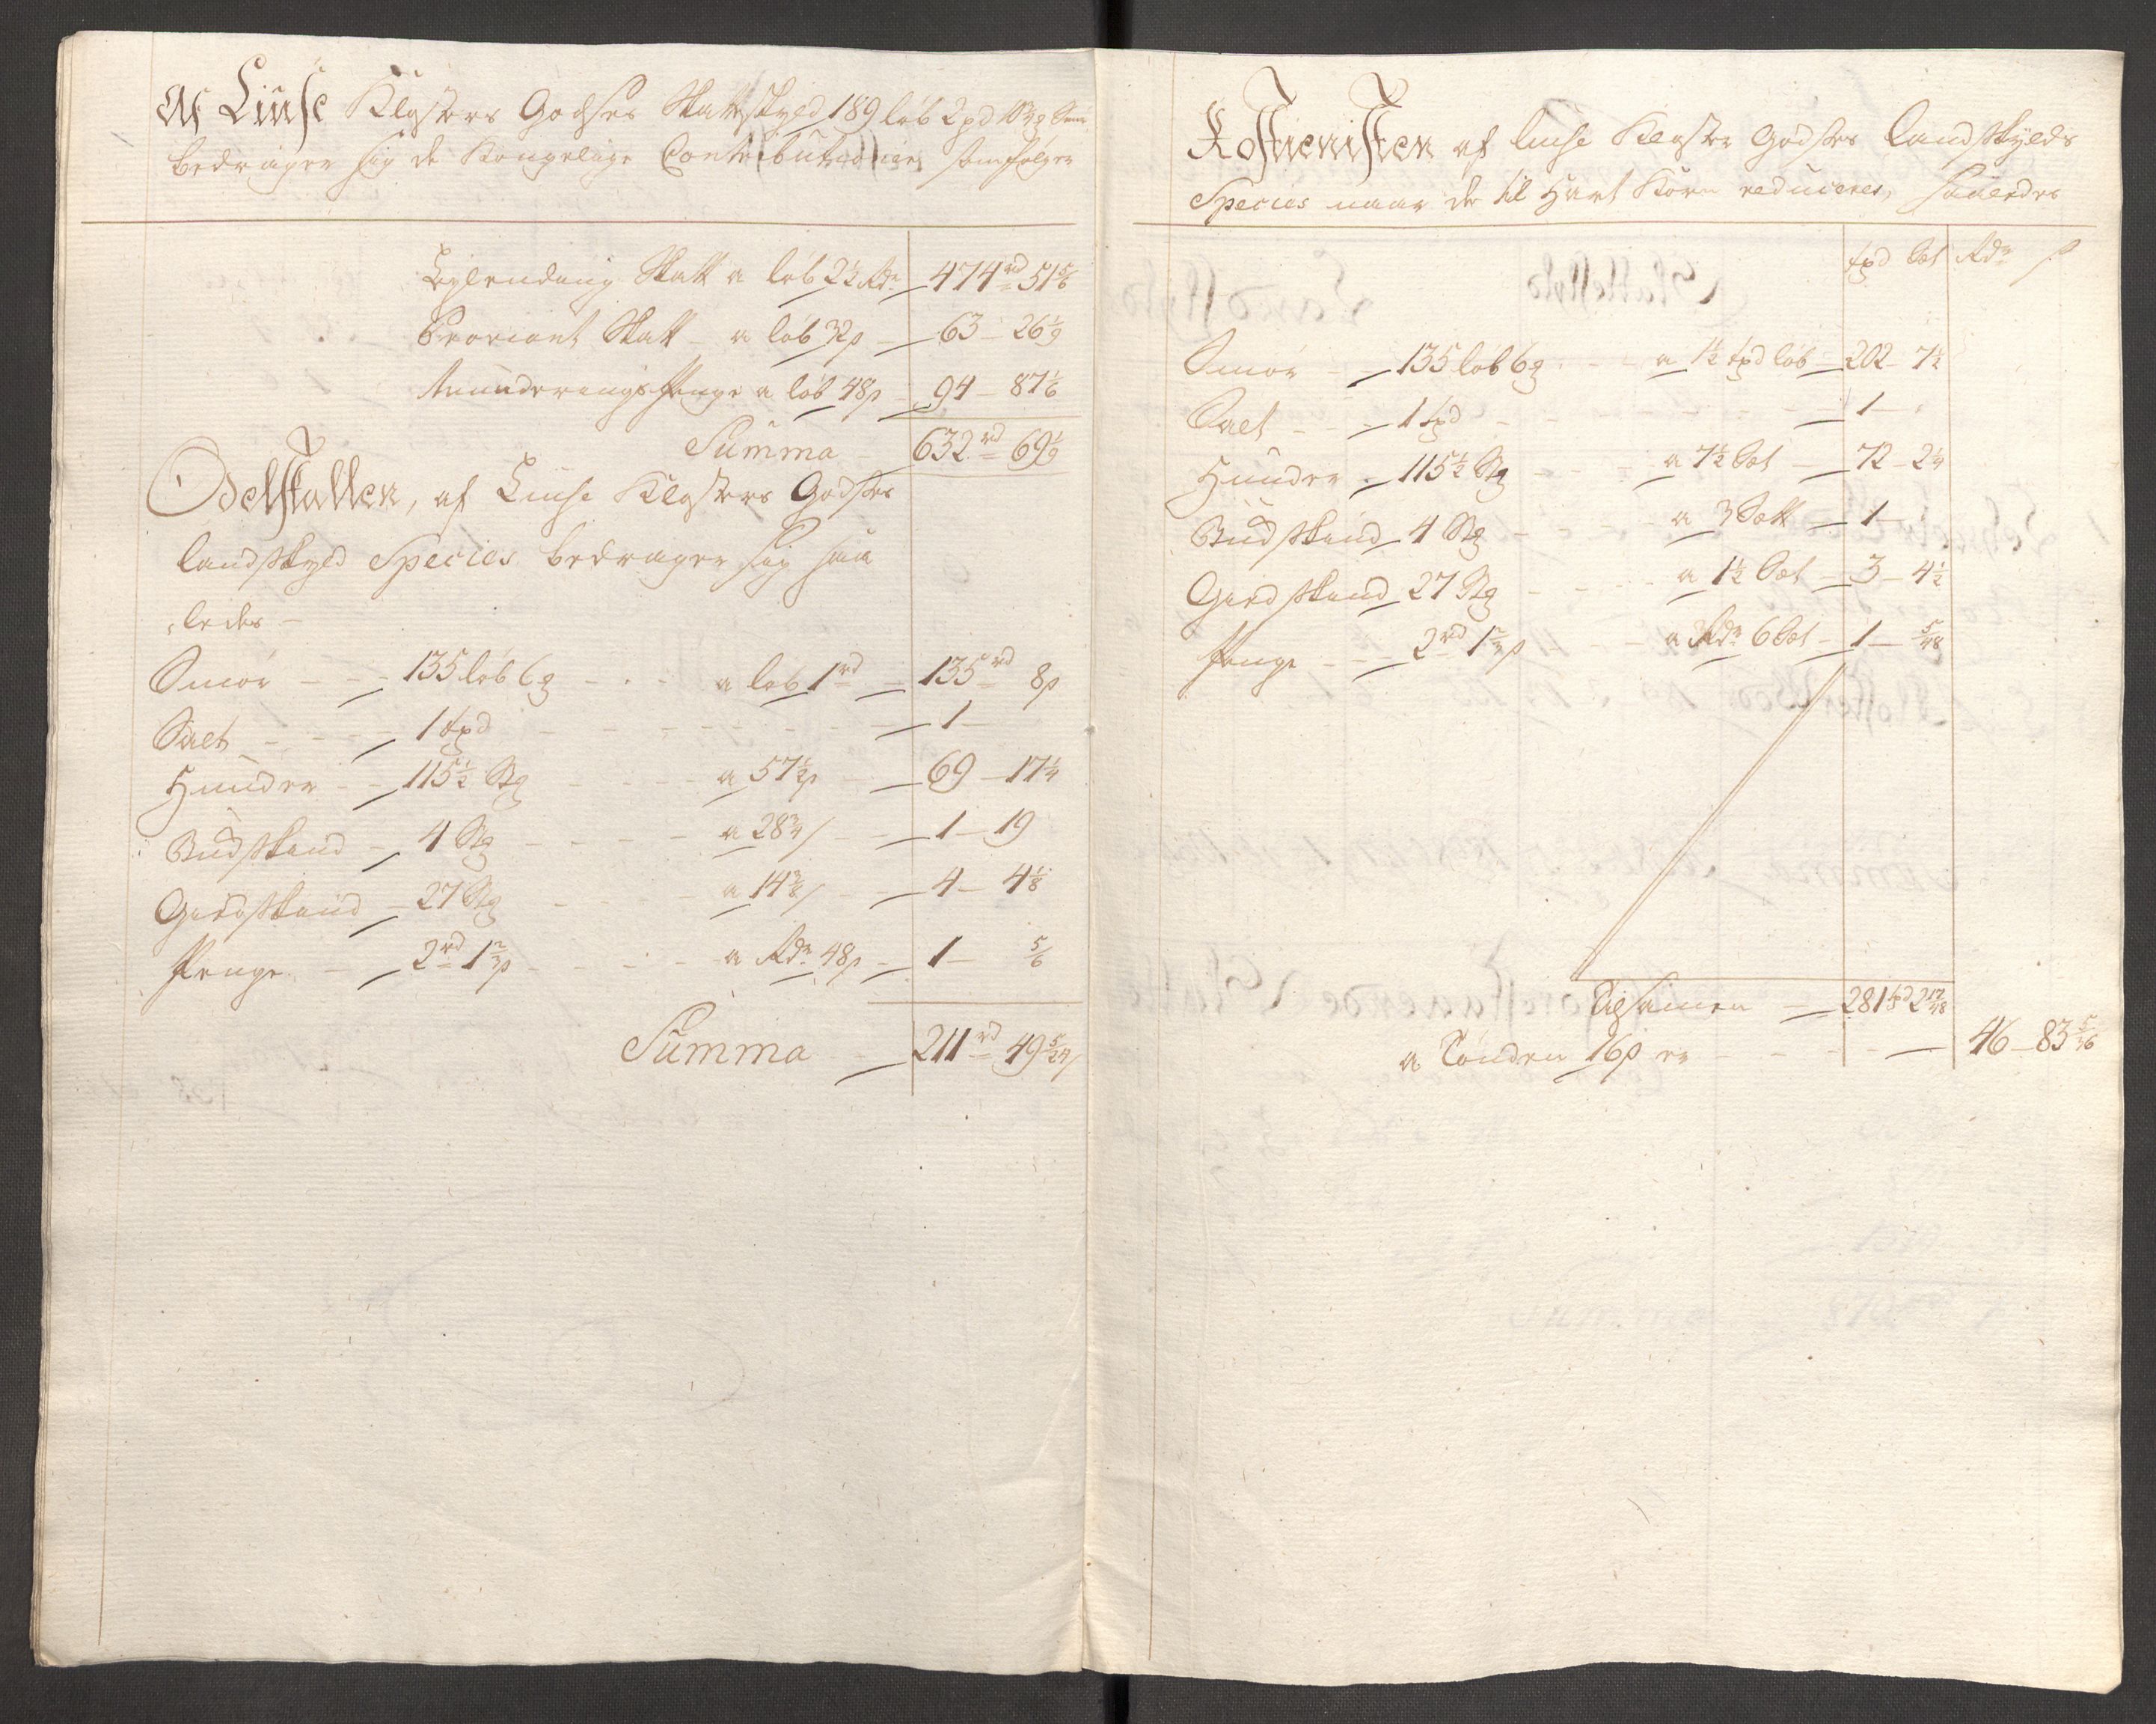 Af Liuse Klosters Godses Skatteskyld 189 løb 2 pd
bedrager sig de Kongelige Contributioner som følger
Leylendings Skatt a løb 2½ Rdr 474 rd 51 5/6
Proviant Skatt a løb 32 s 63 - 26 1/9
Munderings Penge a løb 48 s 94 - 87 1/6
Summa 632 rd 69 1/9
Odelskatten, af Liuse Klosters Godses
Landskyld Species bedrager sig saa
ledes
Smør 135 løb 6 a løb 1 rd 135 rd 8 s
Salt 1 tpd 1
Huuder 115½ Stz a 57½ s 69 - 17¼
Budskind 4 Stz a 28¾ s 1 - 19
Giedskind 27 Stz a 14 3/8 s 4 - 4 1/8
Penge 2 rd 1 2/3 s a Rdr 48 s 1 - 5/6
Summa 211 rd 49 5/24 s
Rostienisten af Liuse Kloster Godses Landskylds
Species naar de til Hart Korn reduceres, saaledes
tpd Set Rdr s
Smør 135 løb 6 a 1½ tpd løb 202 - 7½
Salt 1 tpd 1
Huuder 115½ Stz a 7½ Set 72 - 2¼
Budskind 4 Stz a 3 Sett 1
Giedskind 27 Stz a 1½ Set 3 - 4½
Penge 2 rd 1 2/3 s a Rdr 6 Set 1 - 5/48
Tilsamen 281 tpd 2 17/48
a Tønden 16 s er 46 - 83